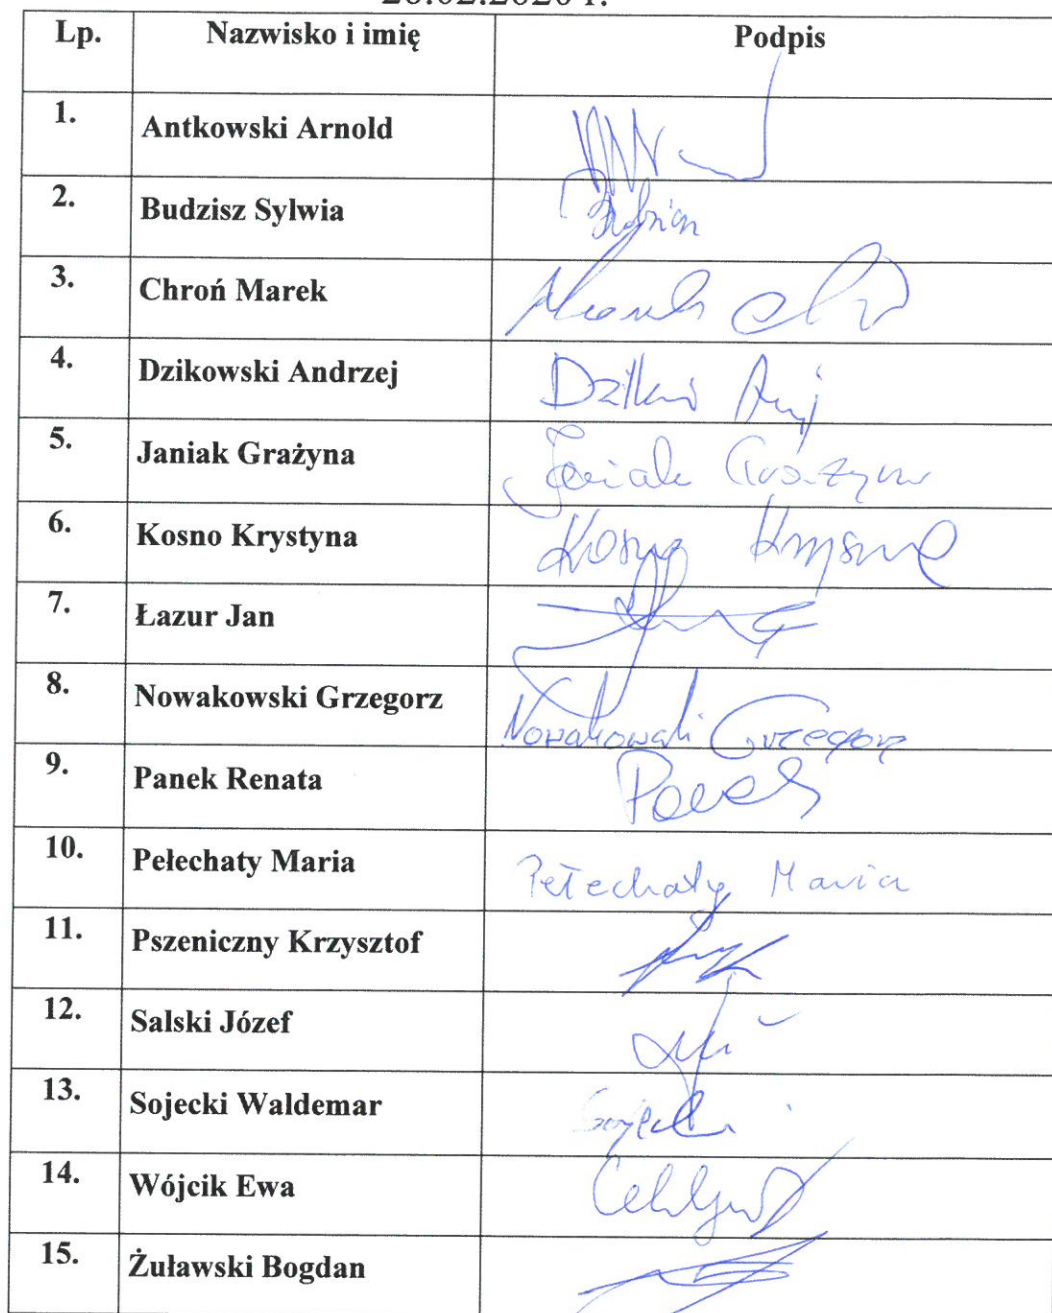 Lp. Nazwisko i imię Podpis
1. Antkowski Arnold
2. Budzisz Sylwia
3. Chroń Marek Marek
4. Dzikowski Andrzej
5. Janiak Grażyna Janiak Grażyna
6. Kosno Krystyna Kosno Krystyna
7. Łazur Jan
8. Nowakowski Grzegorz Nowakowski Grzegorz
9. Panek Renata Panek
10. Pełechaty Maria Pełechaty Maria
11. Pszeniczny Krzysztof
12. Salski Józef
13. Sojecki Waldemar Sojecki
14. Wójcik Ewa
15. Żuławski Bogdan